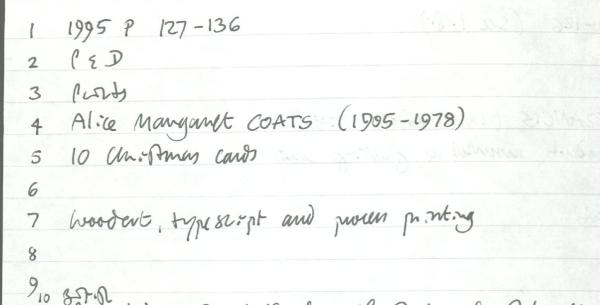 1 1995 P 127-136
2 P & D
3 Prints
4 Alice Margaret COATS (1905-1978)
5 10 Christmas cards
6
7 Woodcut, typescript and process printing
8
9
10